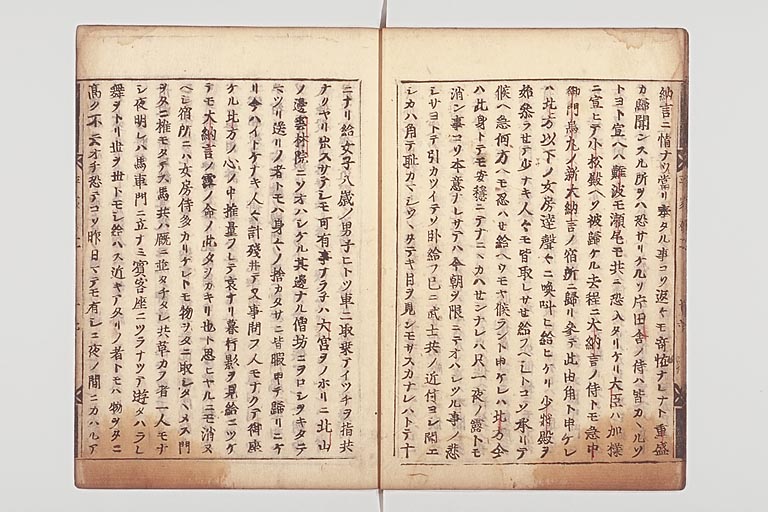 納言ニ情ナツ當リ奉タル事コソ返々モ奇恠ナレナト重盛
カ歸聞ンスル所ヲハ恐サリケルソ片田舎ノ侍ハ皆カヽルソ
トヨト宣ヘハ難波モ瀬尾モ共ニ恐入タリケリ大臣ハ加様
ニ宣ヒテ小松殿ヘソ被歸ケル去程ニ大納言ノ侍トモ急中
御門烏丸ノ新大納言ノ宿所ニ歸リ參テ此由角ト申ケレ
ハ北方以下ノ女房達聲々ニ喚叫ヒ給ヒケリ少將殿ヲ
始參ラセテ少ナキ人々モ皆取レサセ給フヘシトコソ承リテ
候ヘ急何方ヘモ忍ハセ給ヘヤ候ラント申ケレハ北方今
ハ此身トテモ安穩ニテナニヽカハセンナレハ只一夜ノ露トモ
消ン事コソ本意ナレサテハ今朝ヲ限ニテオハシツル事ノ悲
シサヨトテ引カツイテソ卧給フ已ニ武士共ノ近付ヨシ聞エ
シカハ角テ耻カハシヽ
ウタテキ目ヲ見ンモサスカナレハトテ十
ニナリ給女子八歳ノ男子ヒトツ車ニ取乗テイツチヲ指共
ナクヤリ出スサテシモ可有事ナラネハ大宮ヲノホリニ北山
ノ邊雲林院ニソオハシケル其邊ナル僧坊ニヲロシヲキタテ
マツリ送リノ者トモハ身々ノ捨カタサニ皆暇申テ歸リニケ
リ今ハイトケナキ人々計殘井テ又事問フ人モナクテ御座
ケル北方ノ心ノ中推量ラレテ哀ナリ暮行影ヲ見給ニツケ
テモ大納言ノ露ノ命ノ此夕ヲカキリ也ト思ヒヤルニモ消ヌ
ヘシ宿所ニハ女房侍多カリケレトモ物ヲタニ取シタヽメス門
ヲタニ推モタテス馬共ハ厩ニ並タチタレ共草カフ者一人モナ
シ夜明レハ馬車門ニ立ナミ賓客座ニツラナツテ遊タハフレ
舞ヲトリ世ヲ世トモシ給ハス近キアタリノ者トモハ物ヲタニ
高ク不云オチ恐テコソ昨日マテモ有シニ夜ノ間ニカハルア